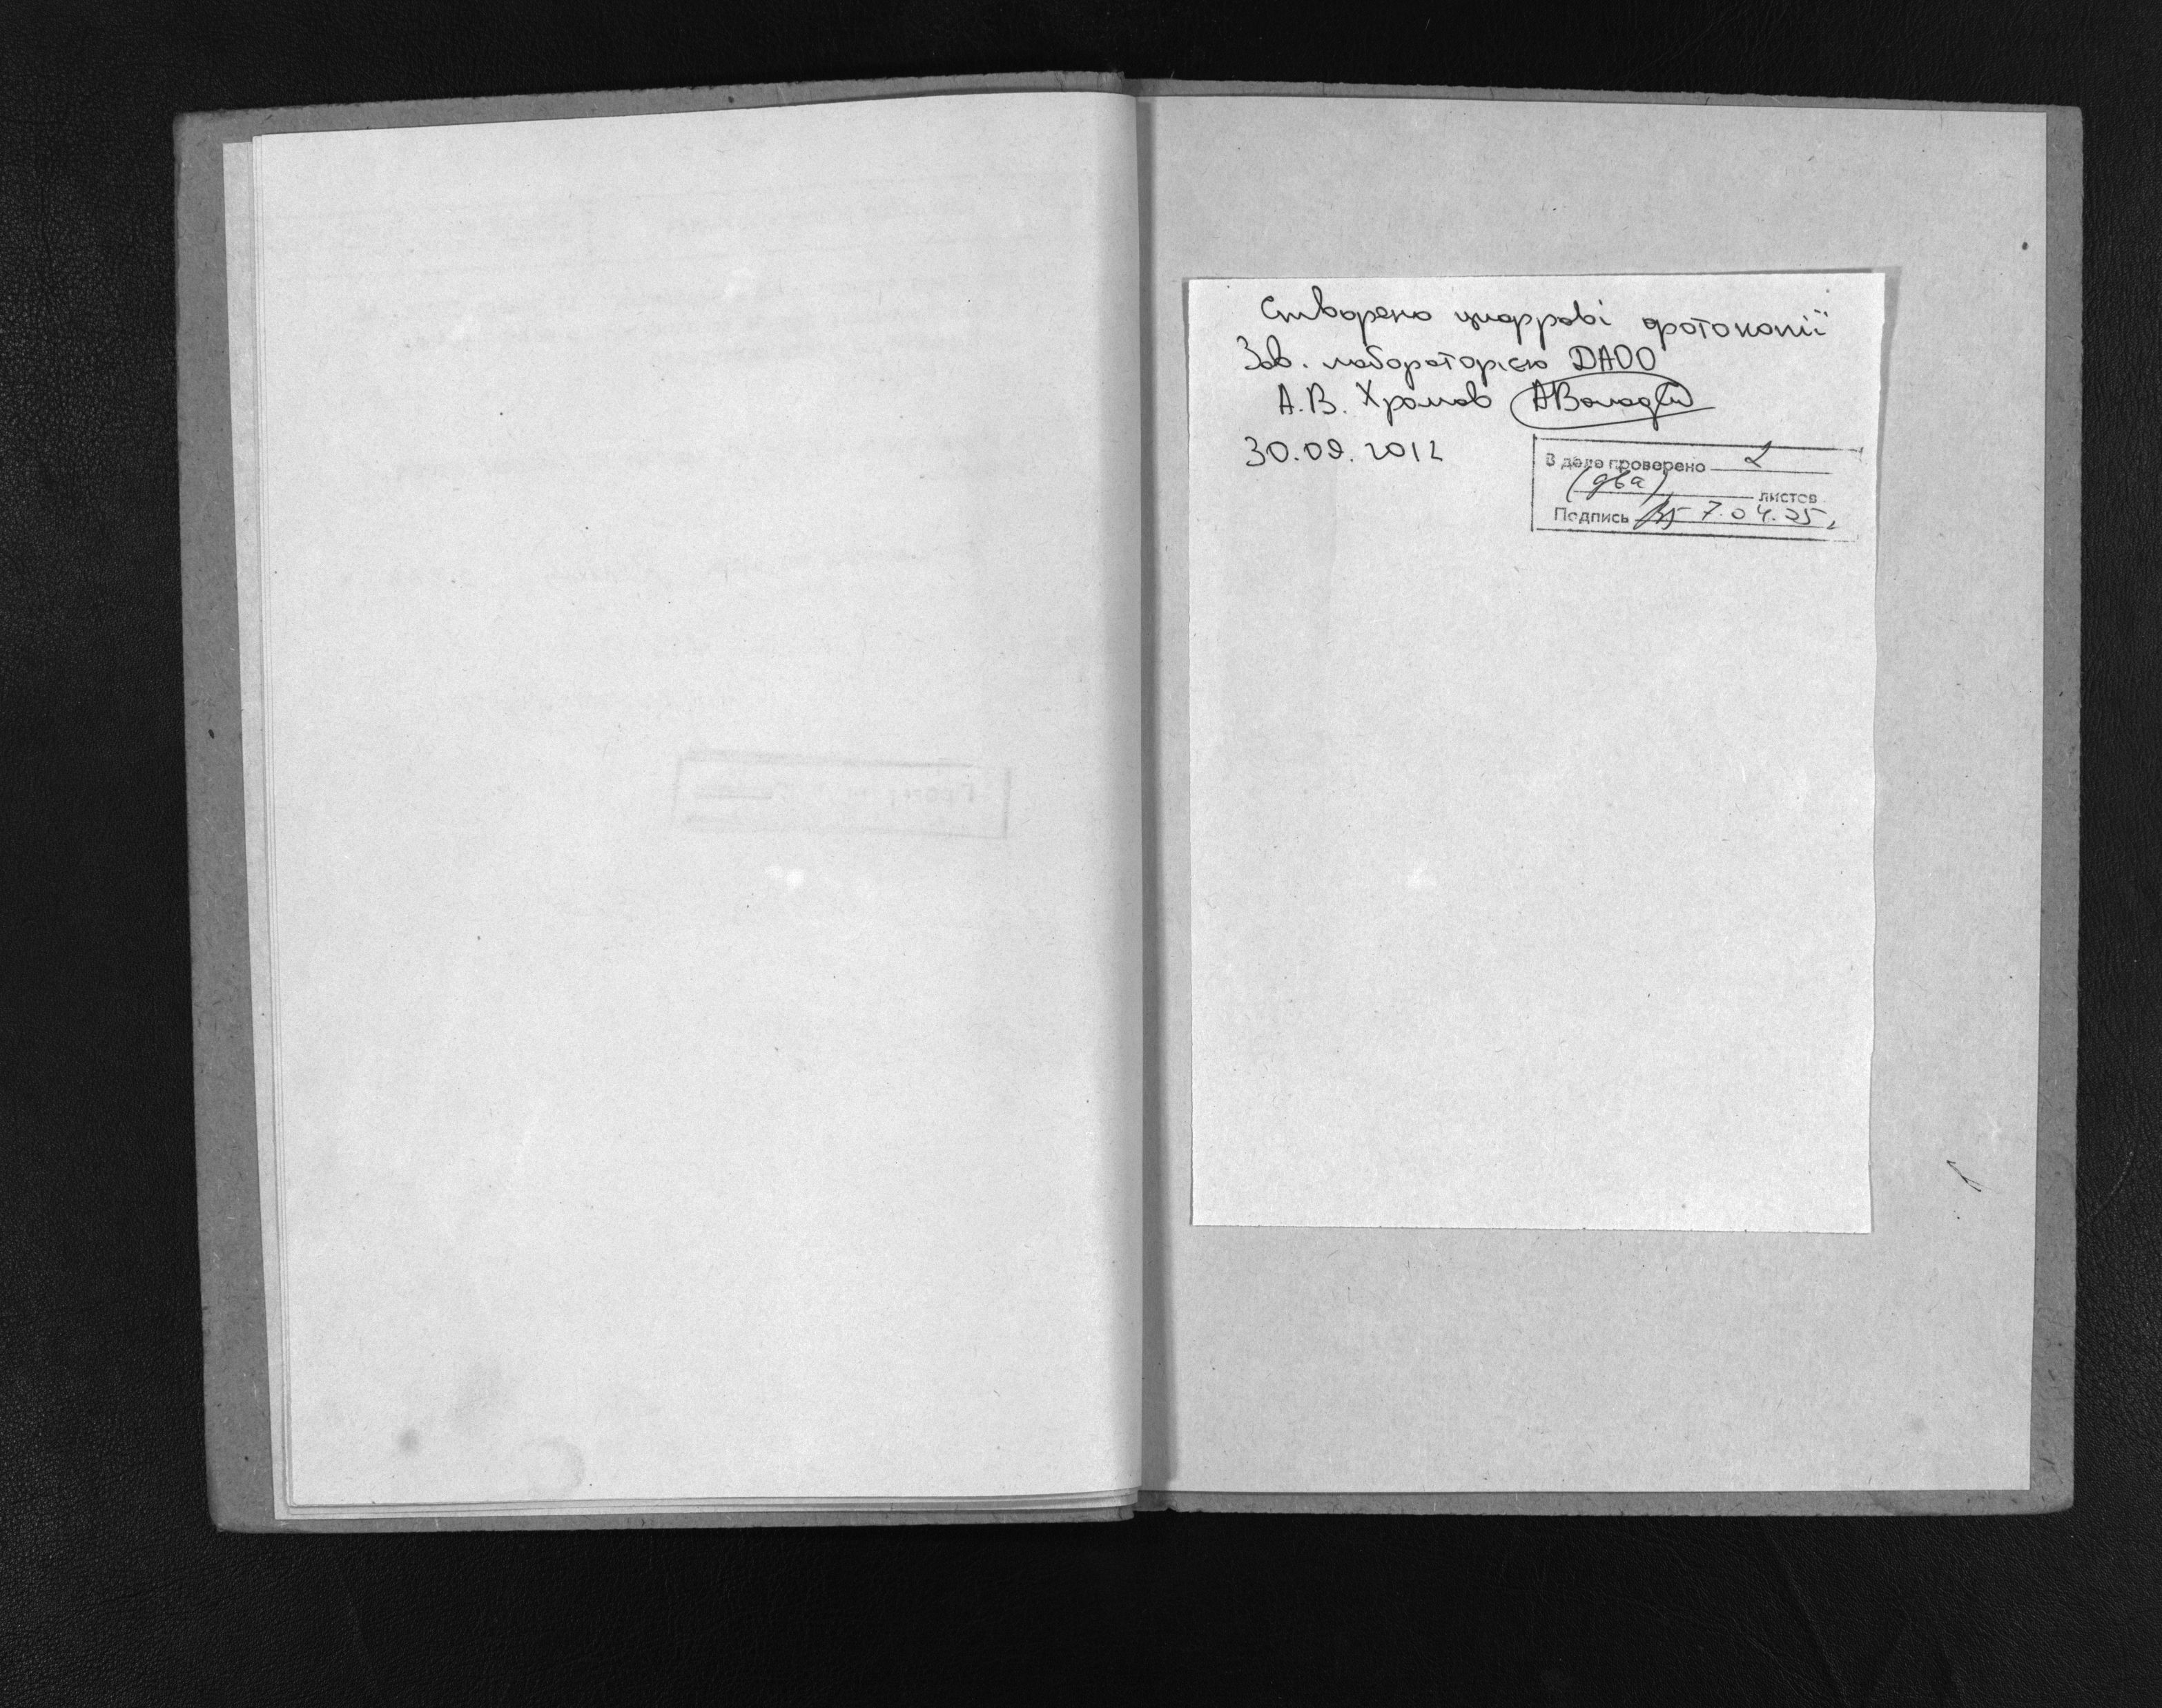 Створено цифрові фотокопії
Зав. лабораторією ДАОО
А.В. Хромов
30.08.2012
В деле проверено 2
(два) листов
Подпись 7.04.05,